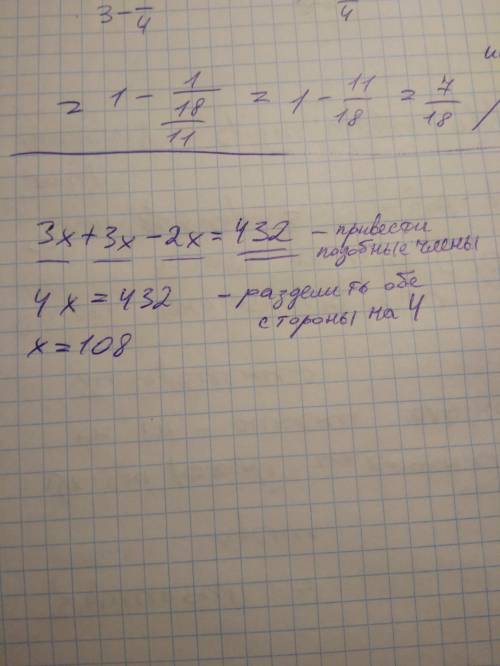 3 - —/4
—/4
= 1 - 1/(18/11) = 1 - 11/18 = 7/18
3x + 3x - 2x = 432 - привести
подобные члены
4x = 432 - разделить обе
стороны на 4
x = 108